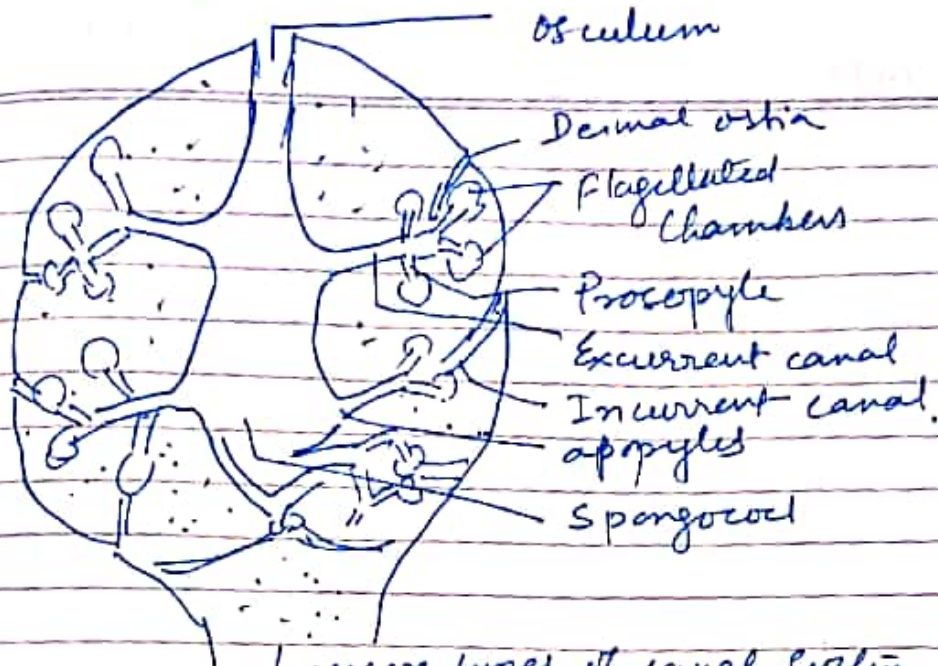 Osculum
Dermal ostia
Flagellated
Chambers
Prosopyle
Excurrent canal
Incurrent canal
apopyles
Spongocoel
canal